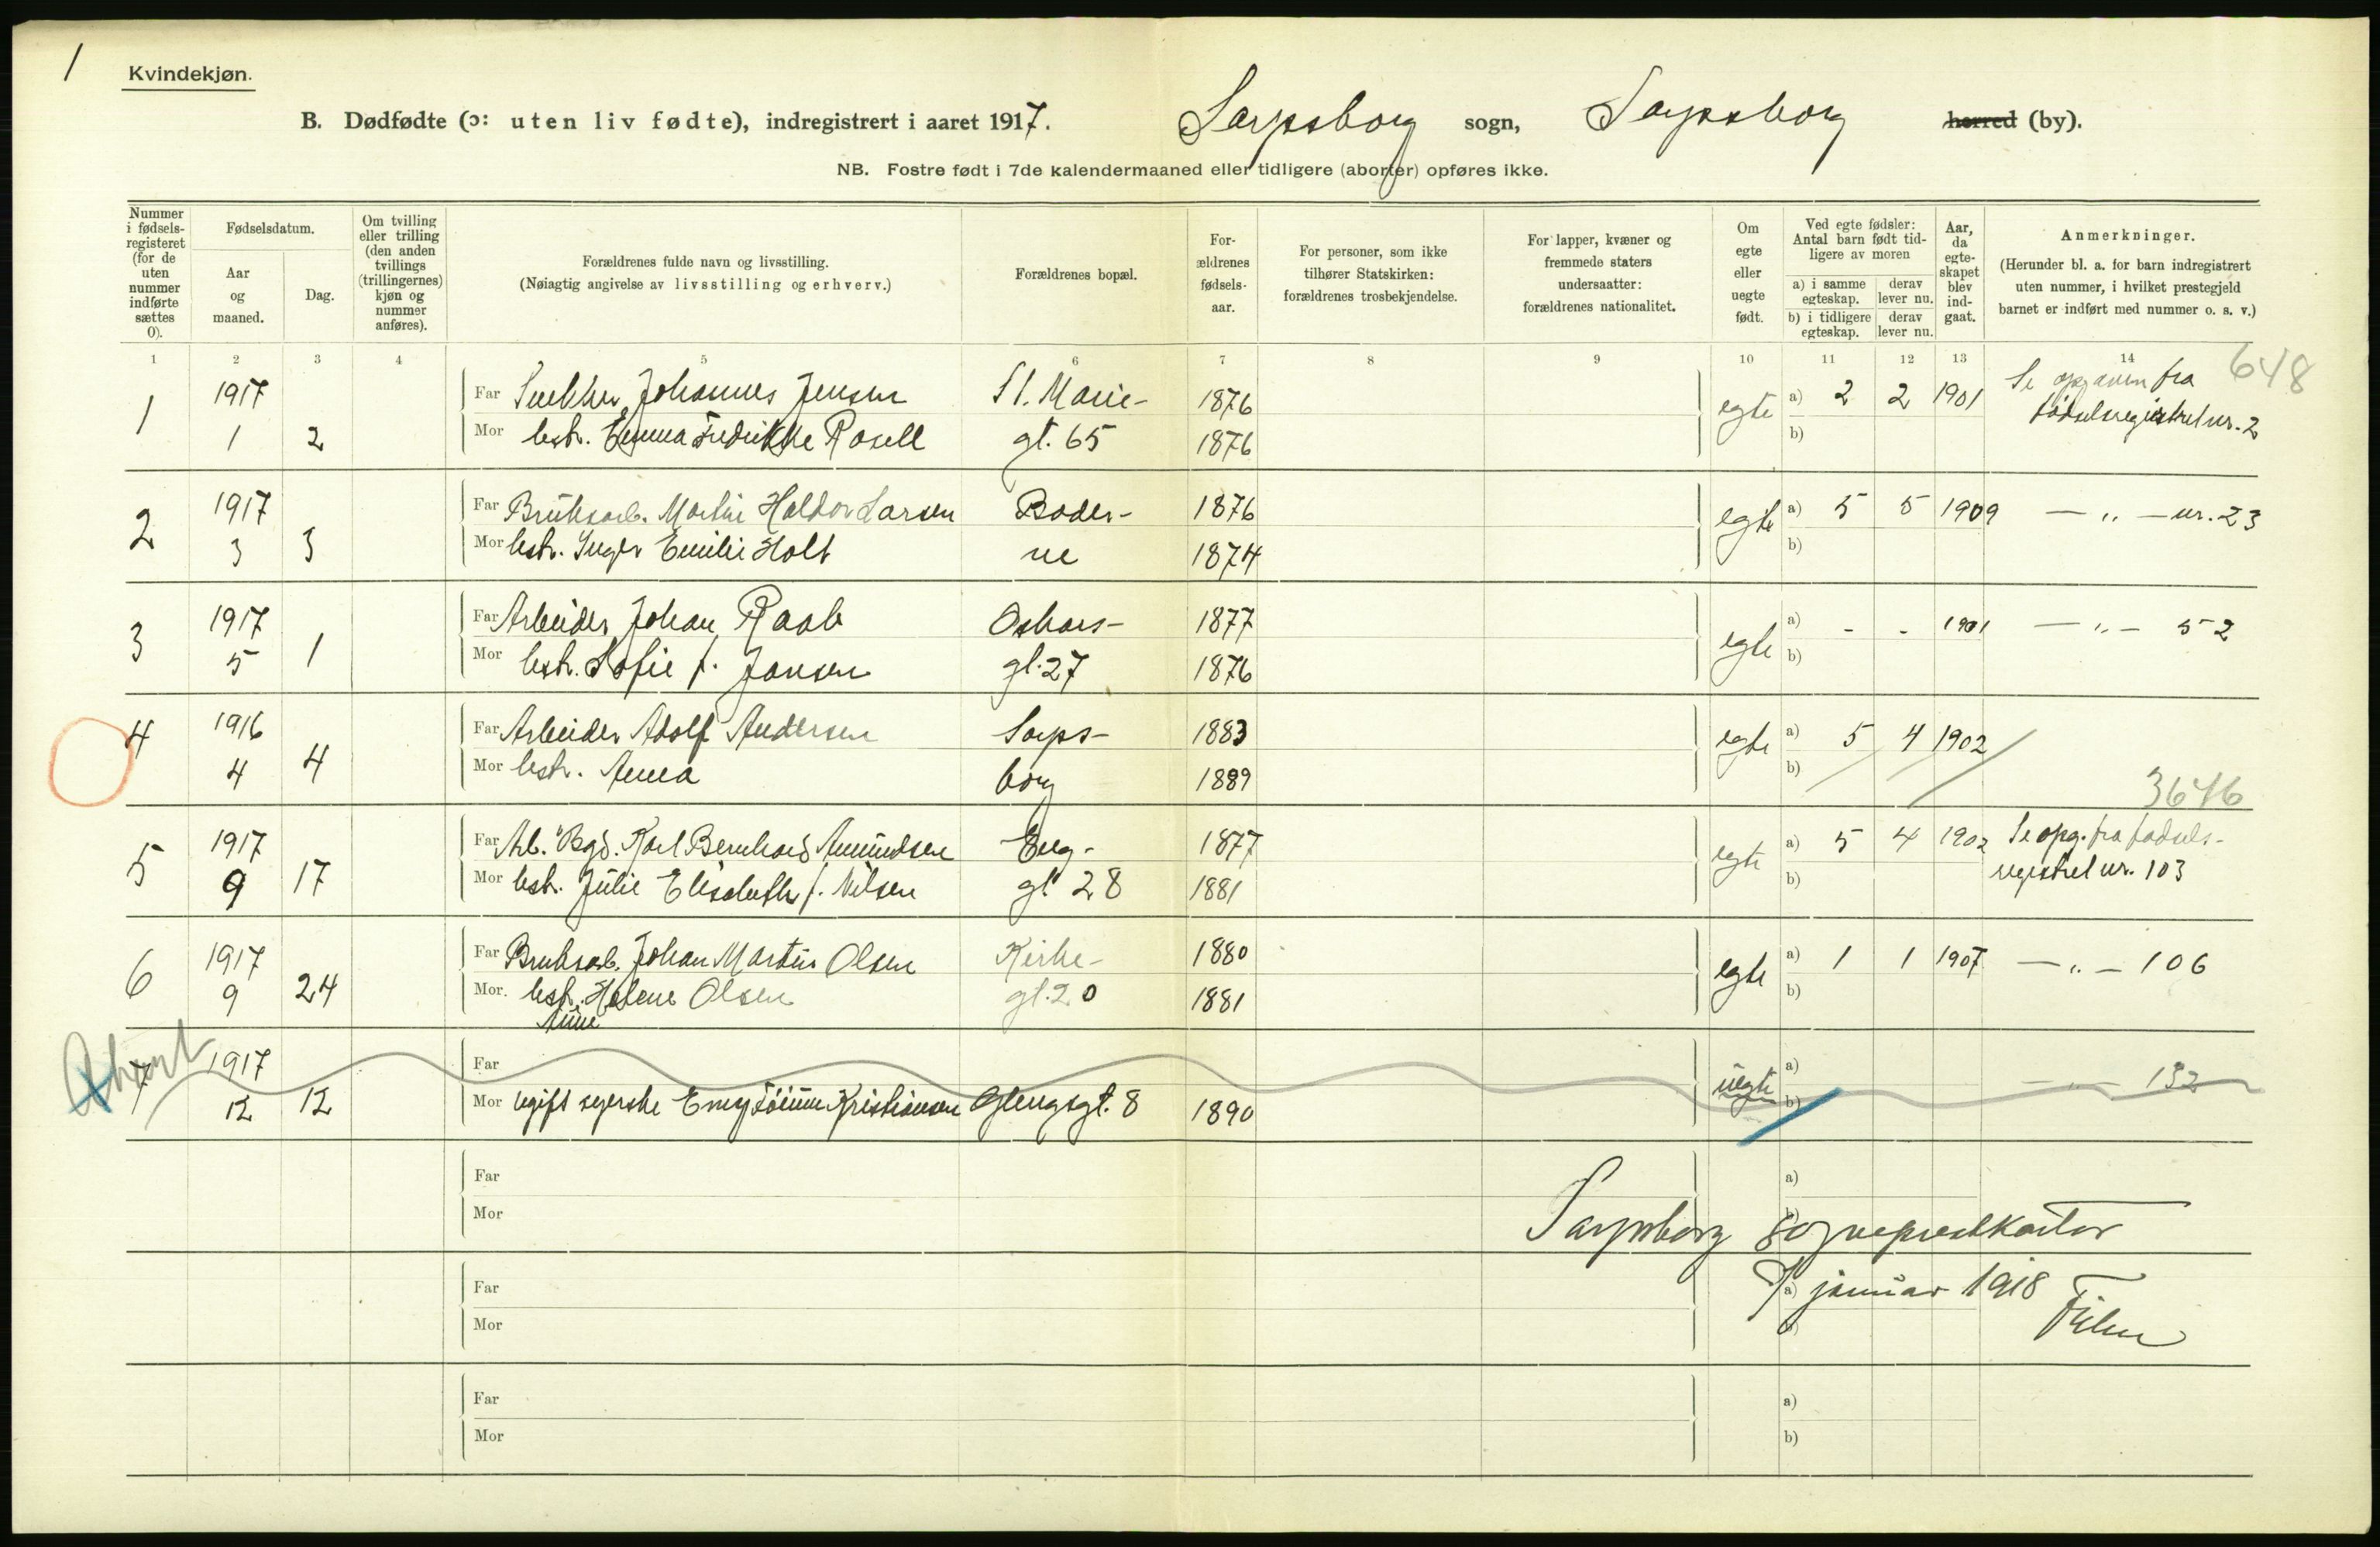 1
Kvindekjøn.
B. Dødfødte (ɔ: uten liv fødte), indregistrert i aaret 1917. Sarpsborg sogn, Sarpsborg herred (by).
NB. Fostre født i 7de kalendermaaned eller tidligere (aborter) opføres ikke.
Nummer i fødsels-registeret (for de uten nummer indførte sættes 0).
Fødselsdatum.
Aar og maaned.
Dag.
Om tvilling eller trilling (den anden tvillings (trillingernes) kjøn og nummer anføres).
Forældrenes fulde navn og livsstilling.
(Nøiagtig angivelse av livsstilling og erhverv.)
Forældrenes bopæl.
For-ældrenes fødsels-aar.
For personer, som ikke tilhører Statskirken: forældrenes trosbekjendelse.
For lapper, kvæner og fremmede staters undersaatter: forældrenes nationalitet.
Om egte eller uegte født.
Ved egte fødsler: Antal barn født tid-ligere av moren
a) i samme egteskap. derav lever nu.
b) i tidligere egteskap. derav lever nu.
Aar, da egte-skapet blev ind-gaat.
Anmerkninger.
(Herunder bl. a. for barn indregistrert uten nummer, i hvilket prestegjeld barnet er indført med nummer o. s. v.)
1 2 3 4 5 6 7 8 9 10 11 12 13 14
648
1 1917 Far Snekker Johannes Jensen St. Marie- 1876 egte a) 2 2 1901 Se opgaven fra
1 2 Mor hustr. Emma Fredrikke Rosell gt. 65 1876 b) fødselsregistret nr. 2
2 1917 Far Bruksarb. Martin Haldor Larsen Boder- 1876 egte a) 5 5 1909 — „ — nr. 23
3 3 Mor hustr. Inger Emilie Holt ne 1874 b)
3 1917 Far Arbeider Johan Raab Oskars- 1877 egte a) - - 1901 — „ — 52
5 1 Mor hustr. Sofie f. Jansen gt. 27 1876 b)
4 1916 Far Arbeider Adolf Andersen Sarps- 1883 egte a) 5 4 1902
4 4 Mor hustr. Anna borg 1889 b)
3646
5 1917 Far Arb. Bgd. Karl Bernhard Amundsen Eng- 1877 egte a) 5 4 1902 Se opg. fra fødsels-
9 17 Mor hustr. Julie Elisabeth f. Nilsen gt 28 1881 b) registret nr. 103
6 1917 Far Bruksarb. Johan Martin Olsen Kirke- 1880 egte a) 1 1 1907 — „ — 106
9 24 Mor. hustr. Helene Olsen gt. 20 1881 b)
Abort
7 1917 Far uegte a) — „ — 132
12 12 Mor ugift syerske Kristiansen Glengsgt. 8 1890 b)
Far a)
Mor
Sarpsborg sogneprestkontor
Far a) januar 1918
Mor b)
Far a)
Mor b)